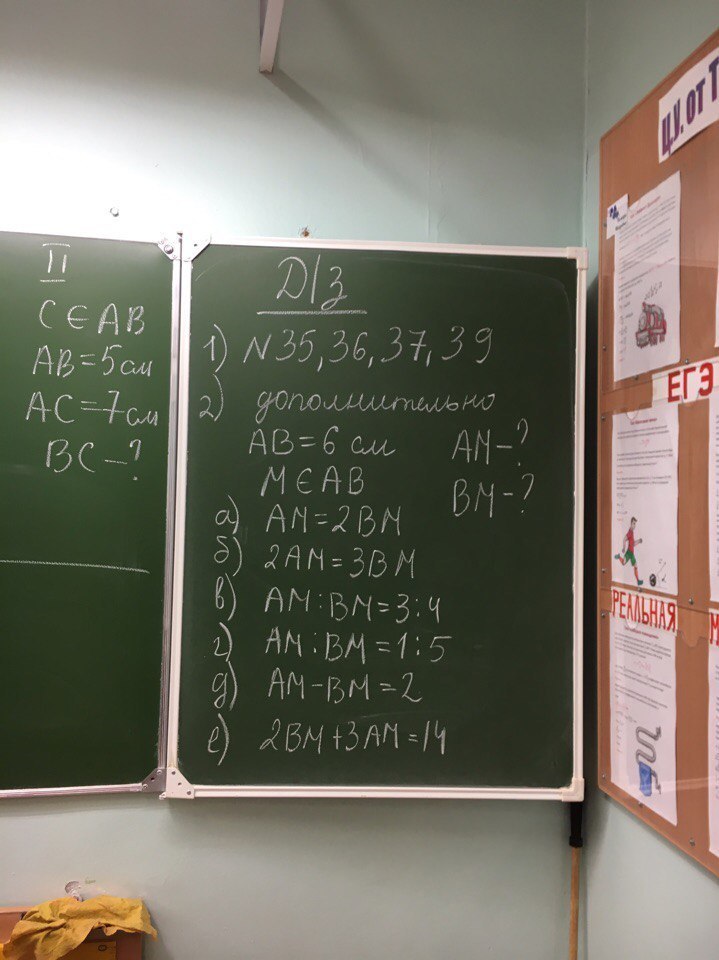 II
C ∈ AB
AB = 5 см
AC = 7 см
BC – ?
Д/з
1) N 35, 36, 37, 39
2) дополнительно
AB = 6 см AM – ?
M ∈ AB BM – ?
а) AM = 2BM
б) 2AM = 3BM
в) AM : BM = 3 : 4
г) AM : BM = 1 : 5
д) AM – BM = 2
е) 2BM + 3AM = 14
Ц.У. от Т
ЕГЭ
РЕАЛЬНАЯ
М